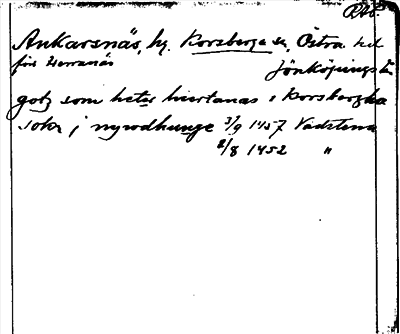 RAp.
Ankarsnäs, hg. Korsberga sn, Östra hd
förr Herranäs Jönköpings län
gotz som heter hiertanas i korsbergha
sokn i nyrodhunge 3/9 1457 Vadstena
2/8 1452 "